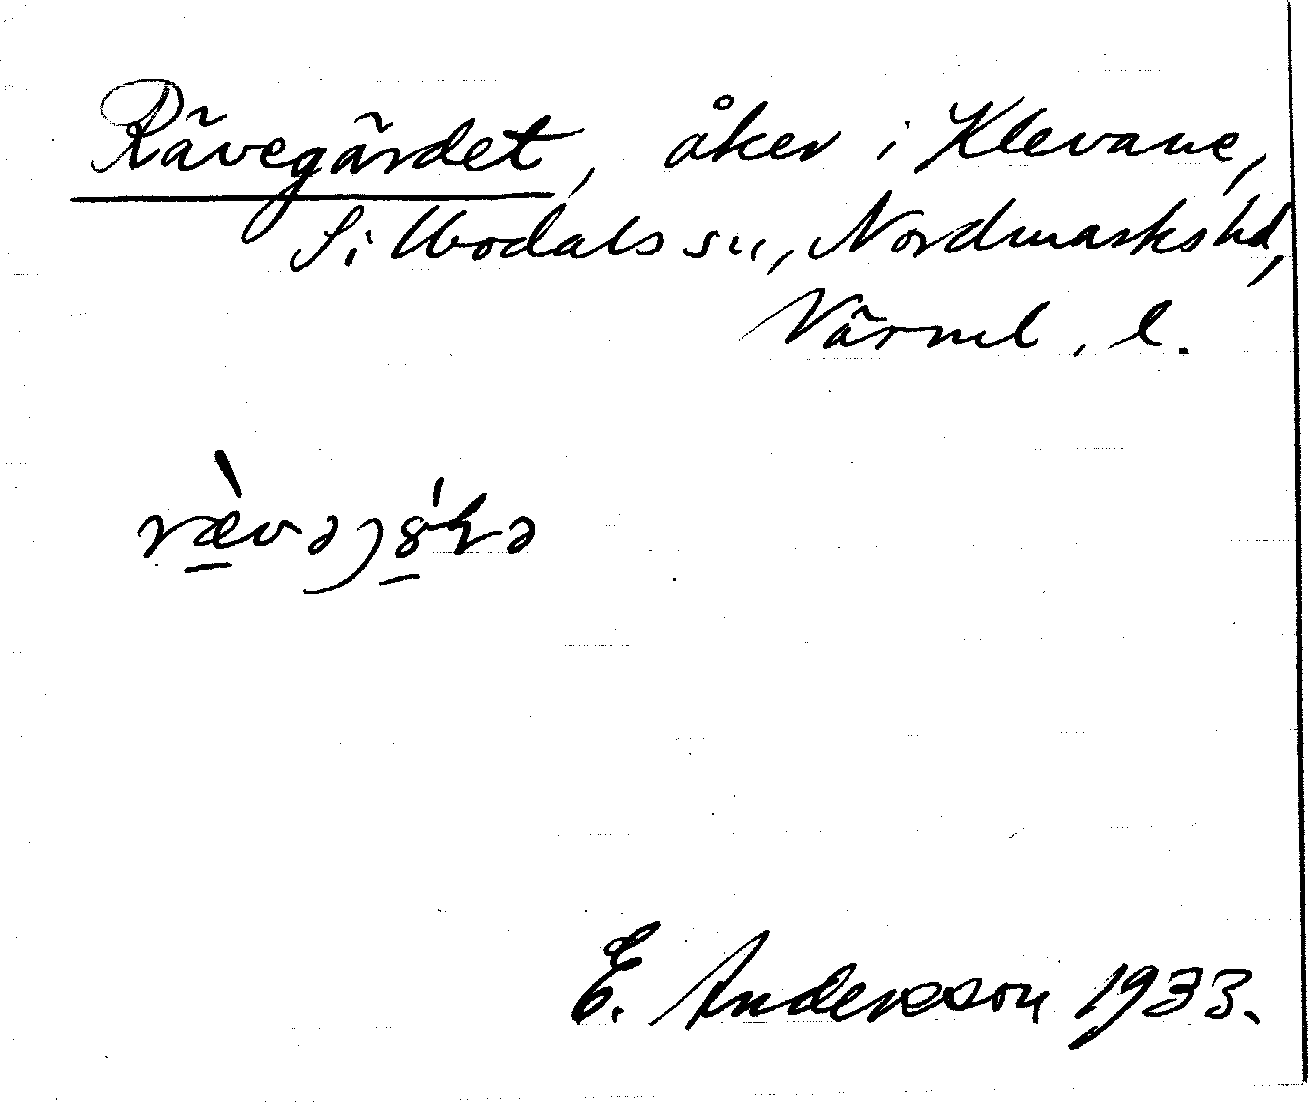 Rävegärdet, åker i Klevane,
Sillbodals sn, Nordmarks hd,
Värml. l.
E. Andersson 1933.